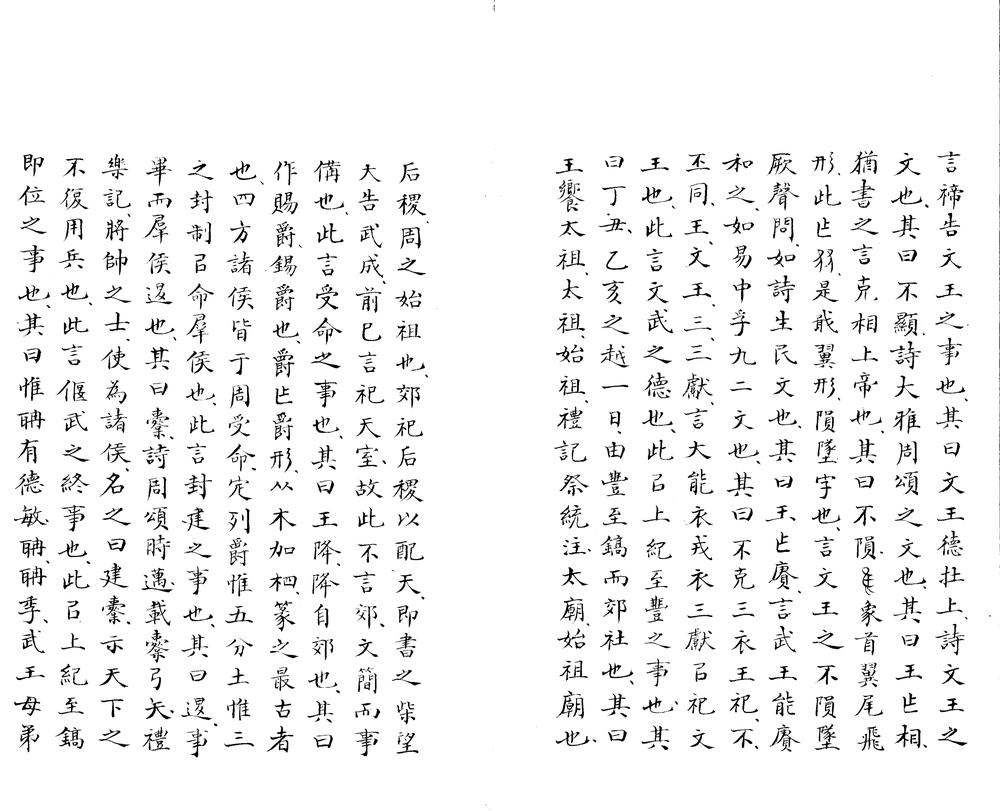 言禘告文王之事也、其曰文王德在上、詩文王之
文也、其曰不顯、詩大雅周頌之文也、其曰王㠯相、
猶書之言克相上帝也、其曰不隕、象首翼尾飛
形、此㠯是翼形、隕墜字也、言文王之不隕墜
厥聲問、如詩生民文也、其曰王㠯賡、言武王能賡
和之、如易中孚九二文也、其曰不克三衣王祀、不、
丕同、王、文王、三、三獻、言大能衣戎衣三獻㠯祀文
王也、此言文武之德也、此㠯上紀至豐之事也、其
曰丁丑、乙亥之越一日、由豐至鎬而郊社也、其曰
王饗太祖、太祖、始祖、禮記祭統注、太廟、始祖廟也、
后稷、周之始祖也、郊祀后稷以配天、即書之柴望
大告武成、前已言祀天室、故此不言郊、文簡而事
備也、此言受命之事也、其曰王降、降自郊也、其曰
作賜爵、錫爵也、爵㠯爵形、从木加梱、篆之最古者
也、四方諸侯皆于周受命、定列爵惟五分土惟三
之封制㠯命羣侯也、此言封建之事也、其曰退、事
畢而羣侯退也、其曰櫜、詩周頌時邁、載櫜弓矢、禮
樂記、將帥之士、使為諸侯、名之曰建櫜、示天下之
不復用兵也、此言偃武之終事也、此㠯上紀至鎬
即位之事也、其曰惟聃有德敏、聃、聃季、武王母弟